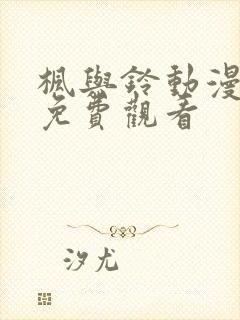 楓與鈴動漫
免費觀看
汐尤